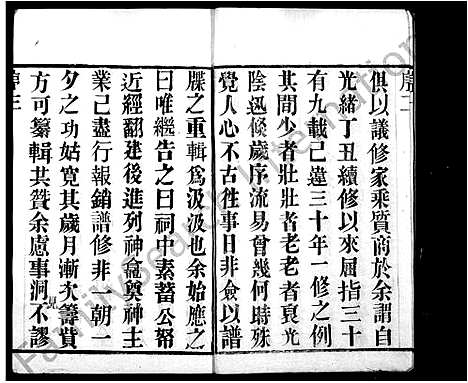 序二
俱以議修家乘質商於余謂自
光緒丁丑續修以來屈指三十
有九載已違三十年一修之例
其間少者壯壯者老老者衰光
陰迅倏歲序流易曾幾何時殊
覺人心不古往事日非僉以譜
牒之重輯爲汲汲也余始應之
曰唯繼告之曰祠中素蓄公帑
近經翻建後進列神龕奠神主
業已盡行報銷譜修非一朝一
夕之功姑寬其歲月漸次籌貲
方可纂輯共贊余慮事洞不謬
序三
FamilySearch International